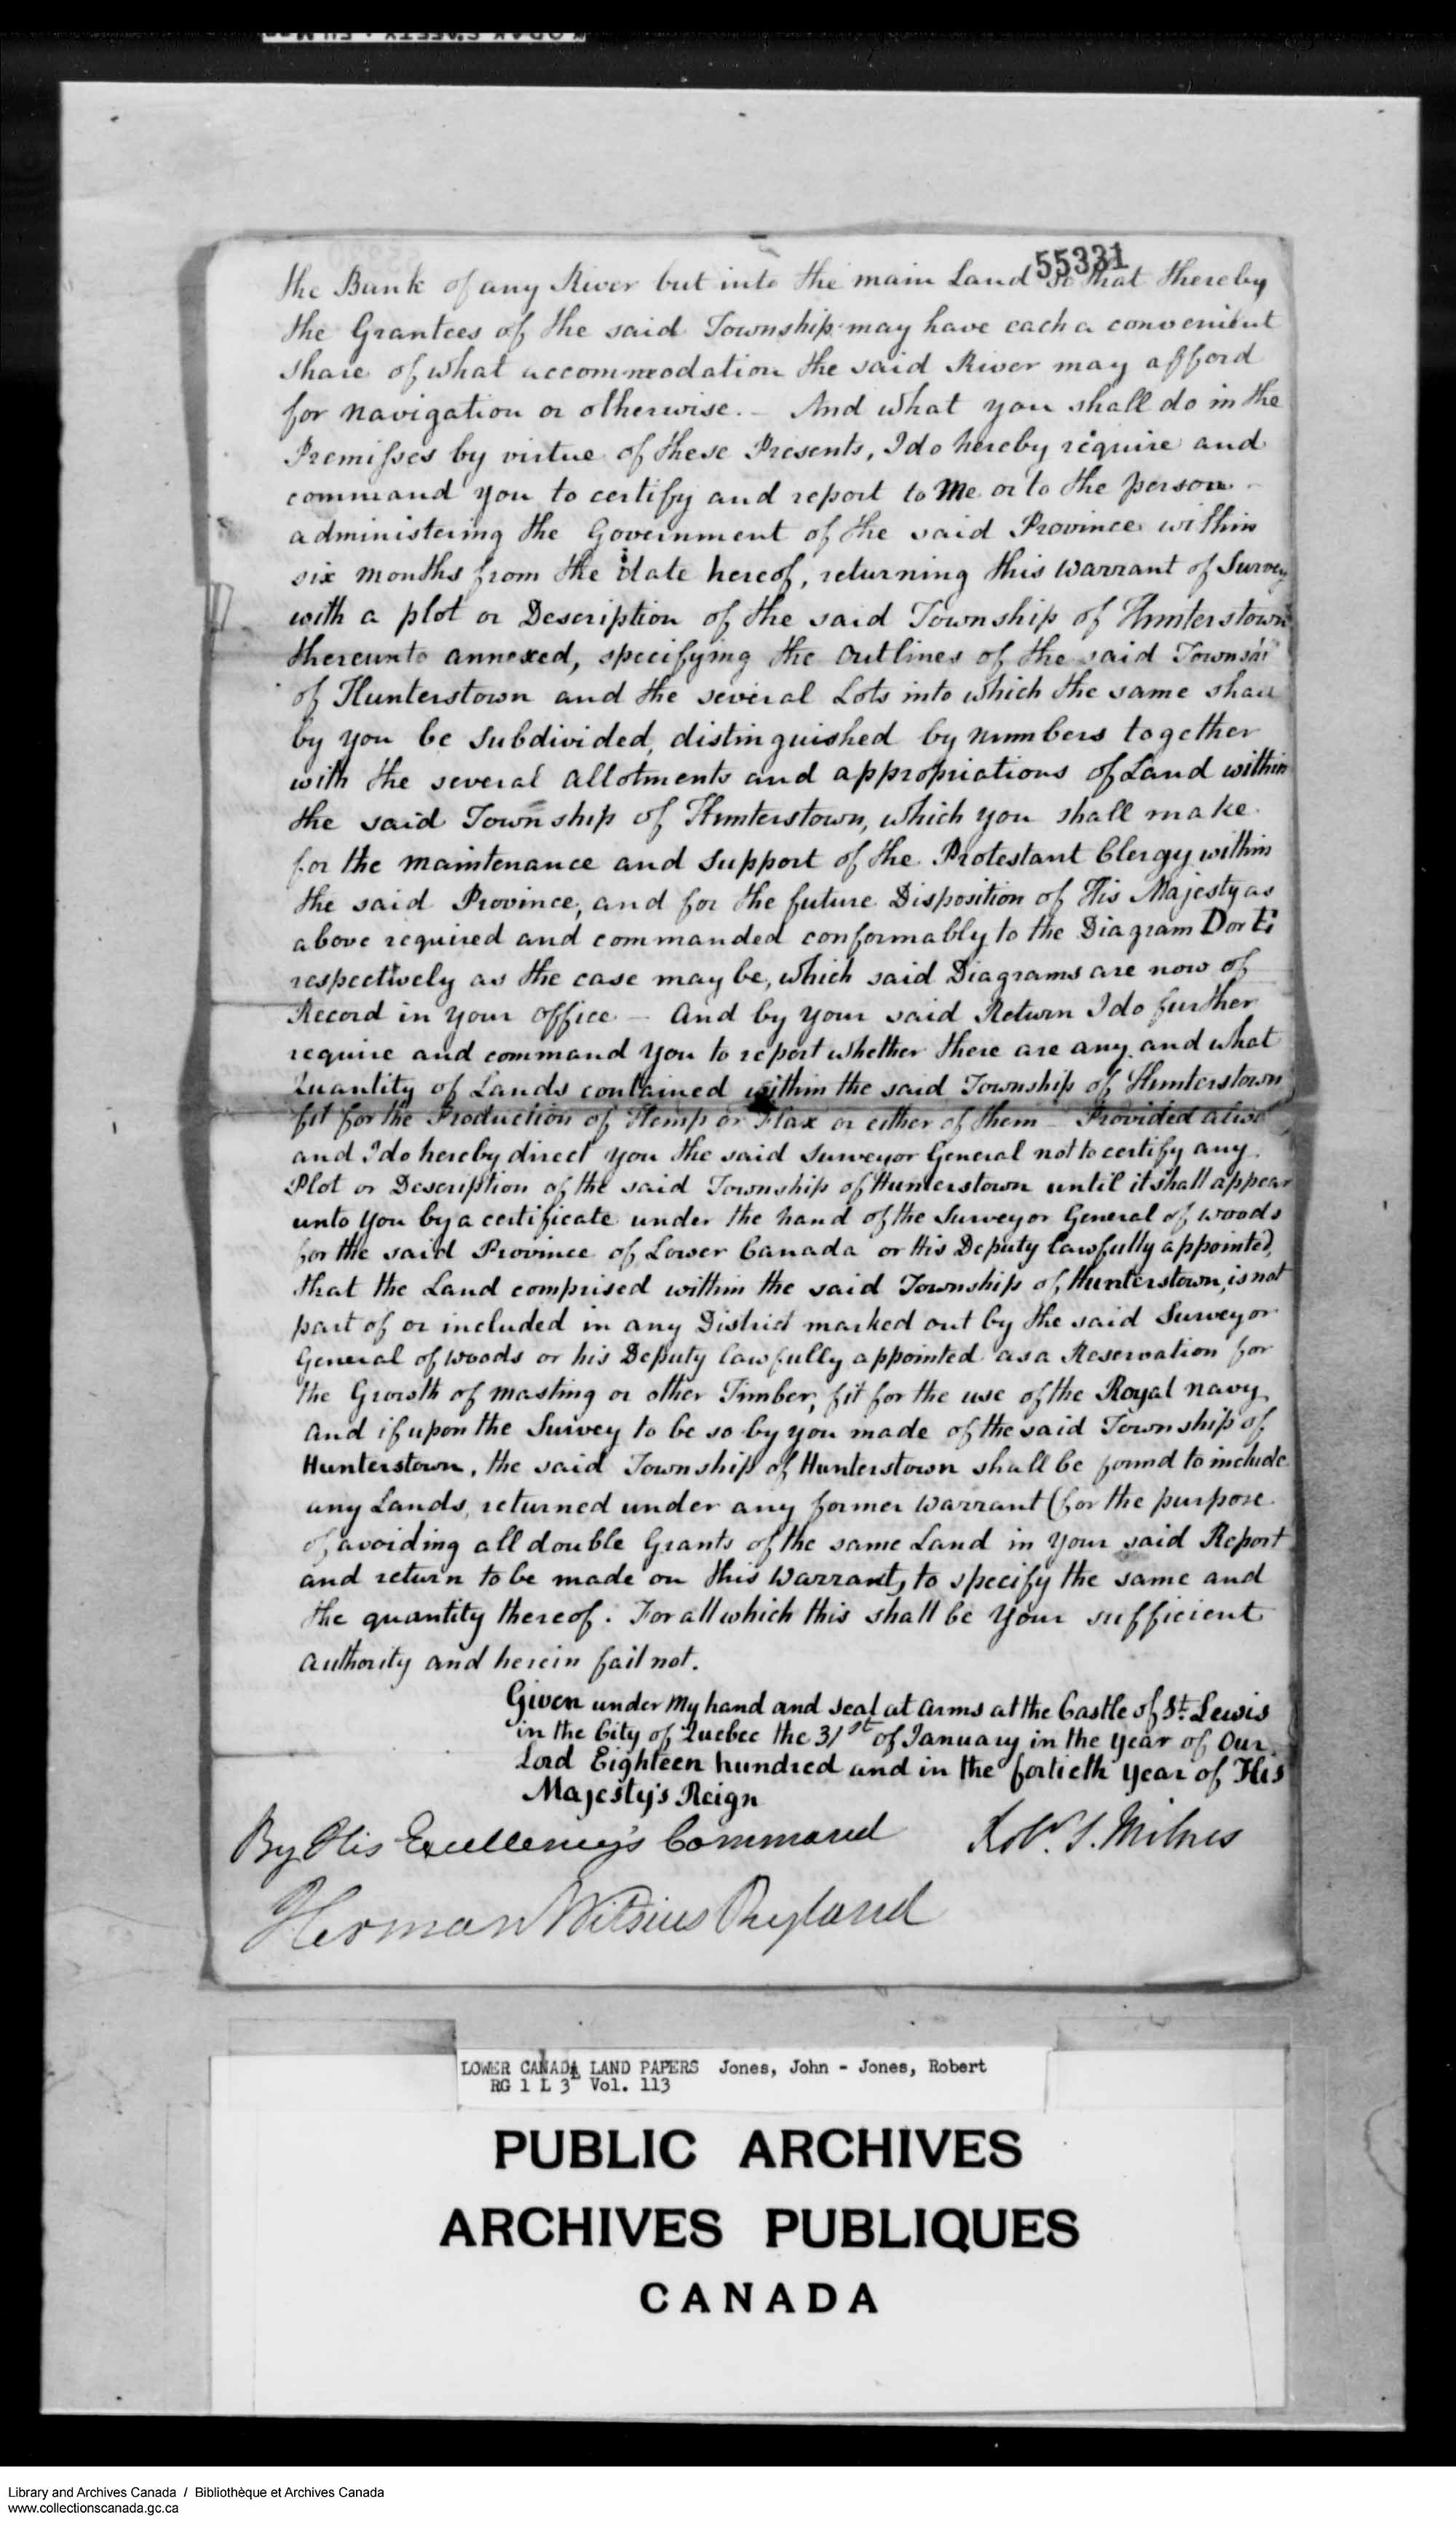 55331
the Bank of any River but into the main Land so that thereby
the Grantees of the said Township may have each a convenient
share of what accommodation the said River may afford
for navigation or otherwise. – And what you shall do in the
Premisses by virtue of these Presents, I do hereby require and
command you to certify and report to Me or to the person
administering the Government of the said Province within
six months from the date hereof, returning this Warrant of Survey
with a plot or Description of the said Township of Hunterstown
thereunto annexed, specifying the outlines of the said Townshi
of Hunterstown and the several Lots into which the same shall
by you be Subdivided, distinguished by numbers together
with the several allotments and appropriations of Land within
the said Township of Hunterstown, which you shall make
for the maintenance and support of the Protestant Clergy within
the said Province, and for the future Disposition of His Majesty as
above required and commanded conformably to the Diagram D or E
respectively as the case may be, which said Diagrams are now of
Record in your office – And by your said Return I do further
require and command you to report whether there are any and what
Quantity of Lands contained within the said Township of Hunterstown
fit for the Production of Hemp or Flax or either of them – Provided also
and I do hereby direct you the said Surveyor General not to certify any
Plot or Description of the said Township of Hunterstown until it shall appear
unto you by a certificate under the hand of the Surveyor General of woods
for the said Province of Lower Canada or His Deputy lawfully appointed,
that the Land comprised within the said Township of Hunterstown, is not
part of or included in any District marked out by the said Surveyor
General of Woods or his Deputy lawfully appointed as a Reservation for
the Growth of masting or other Timber, fit for the use of the Royal navy,
And if upon the Survey to be so by you made of the said Township of
Hunterstown, the said Township of Hunterstown shall be found to include
any Lands, returned under any former Warrant (for the purpose
of avoiding all double Grants of the same Land in your said Report
and return to be made on this Warrant, to specify the same and
the quantity thereof. For all which this shall be your sufficient
authority and herein fail not.
Given under My hand and seal at arms at the Castle of St. Lewis
in the City of Quebec the 31st of January in the year of Our
Lord Eighteen hundred and in the fortieth year of His
Majesty's Reign
By His Excellency's Command Robt. S. Milnes
Herman Witsius Ryland
LOWER CANADA LAND PAPERS Jones, John - Jones, Robert
RG 1 L 3 Vol. 113
PUBLIC ARCHIVES
ARCHIVES PUBLIQUES
CANADA
Library and Archives Canada / Bibliothèque et Archives Canada
www.collectionscanada.gc.ca